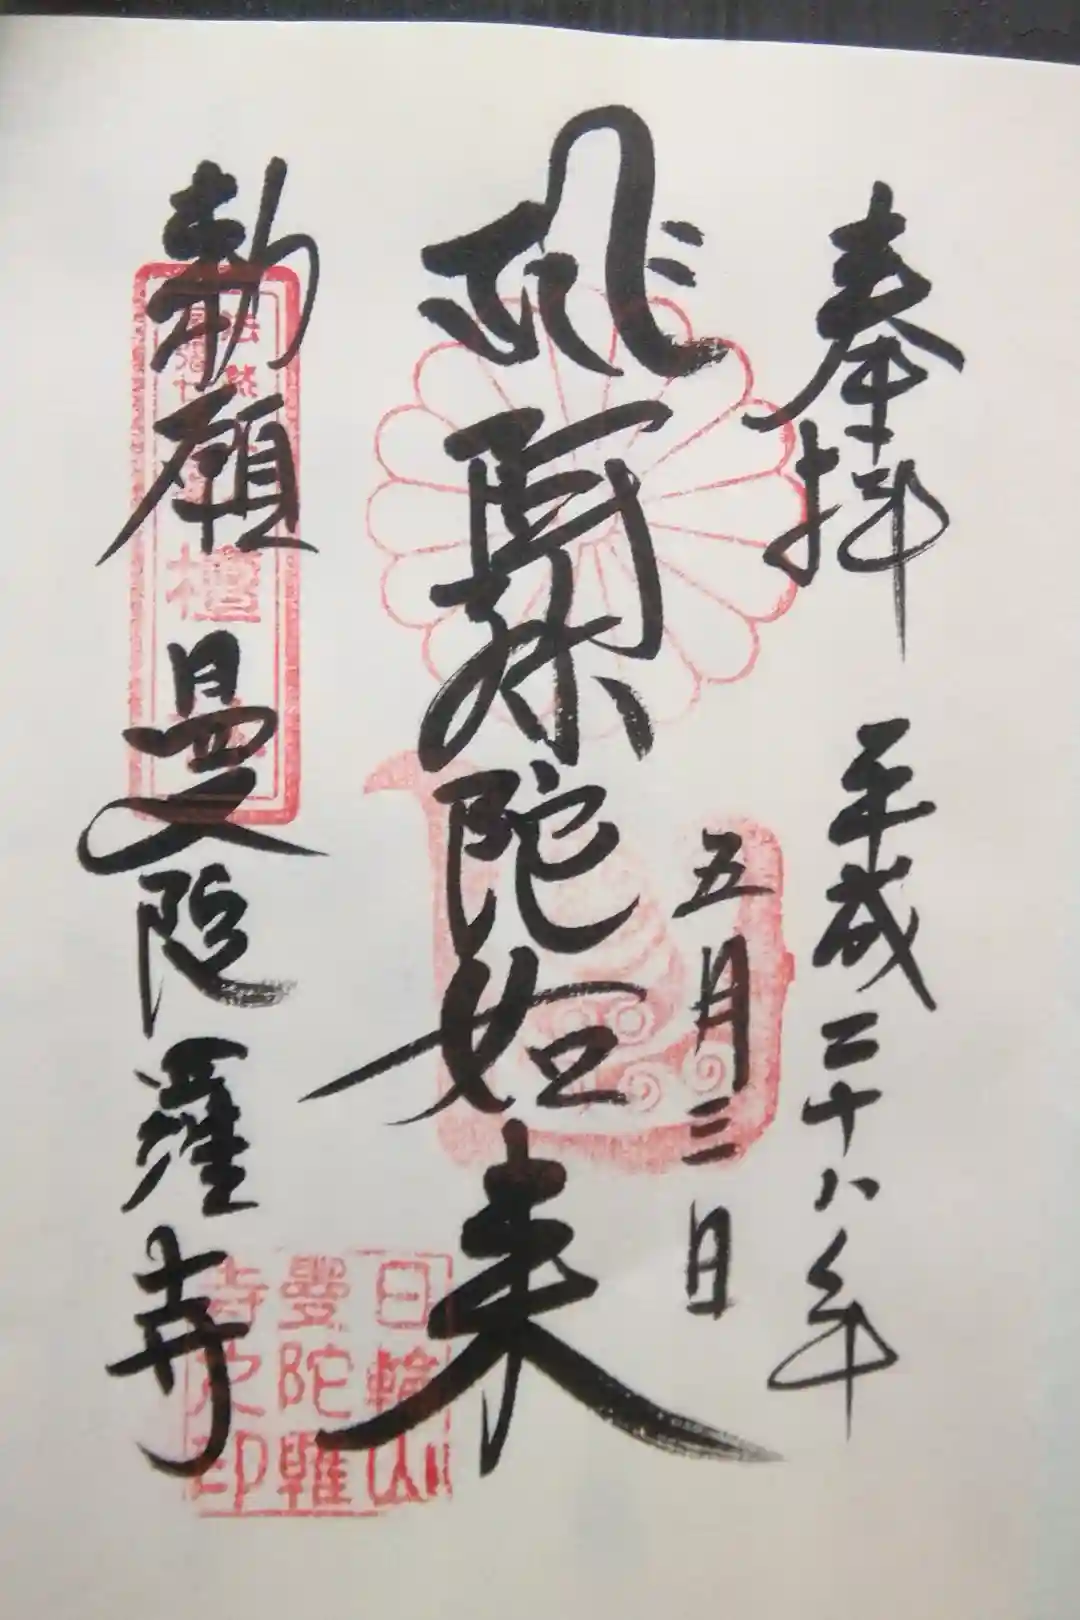 奉拝 平成二十八年
五月三日
阿弥陀如来
勅願 曼陀羅寺
日輪山
曼陀羅
寺之印